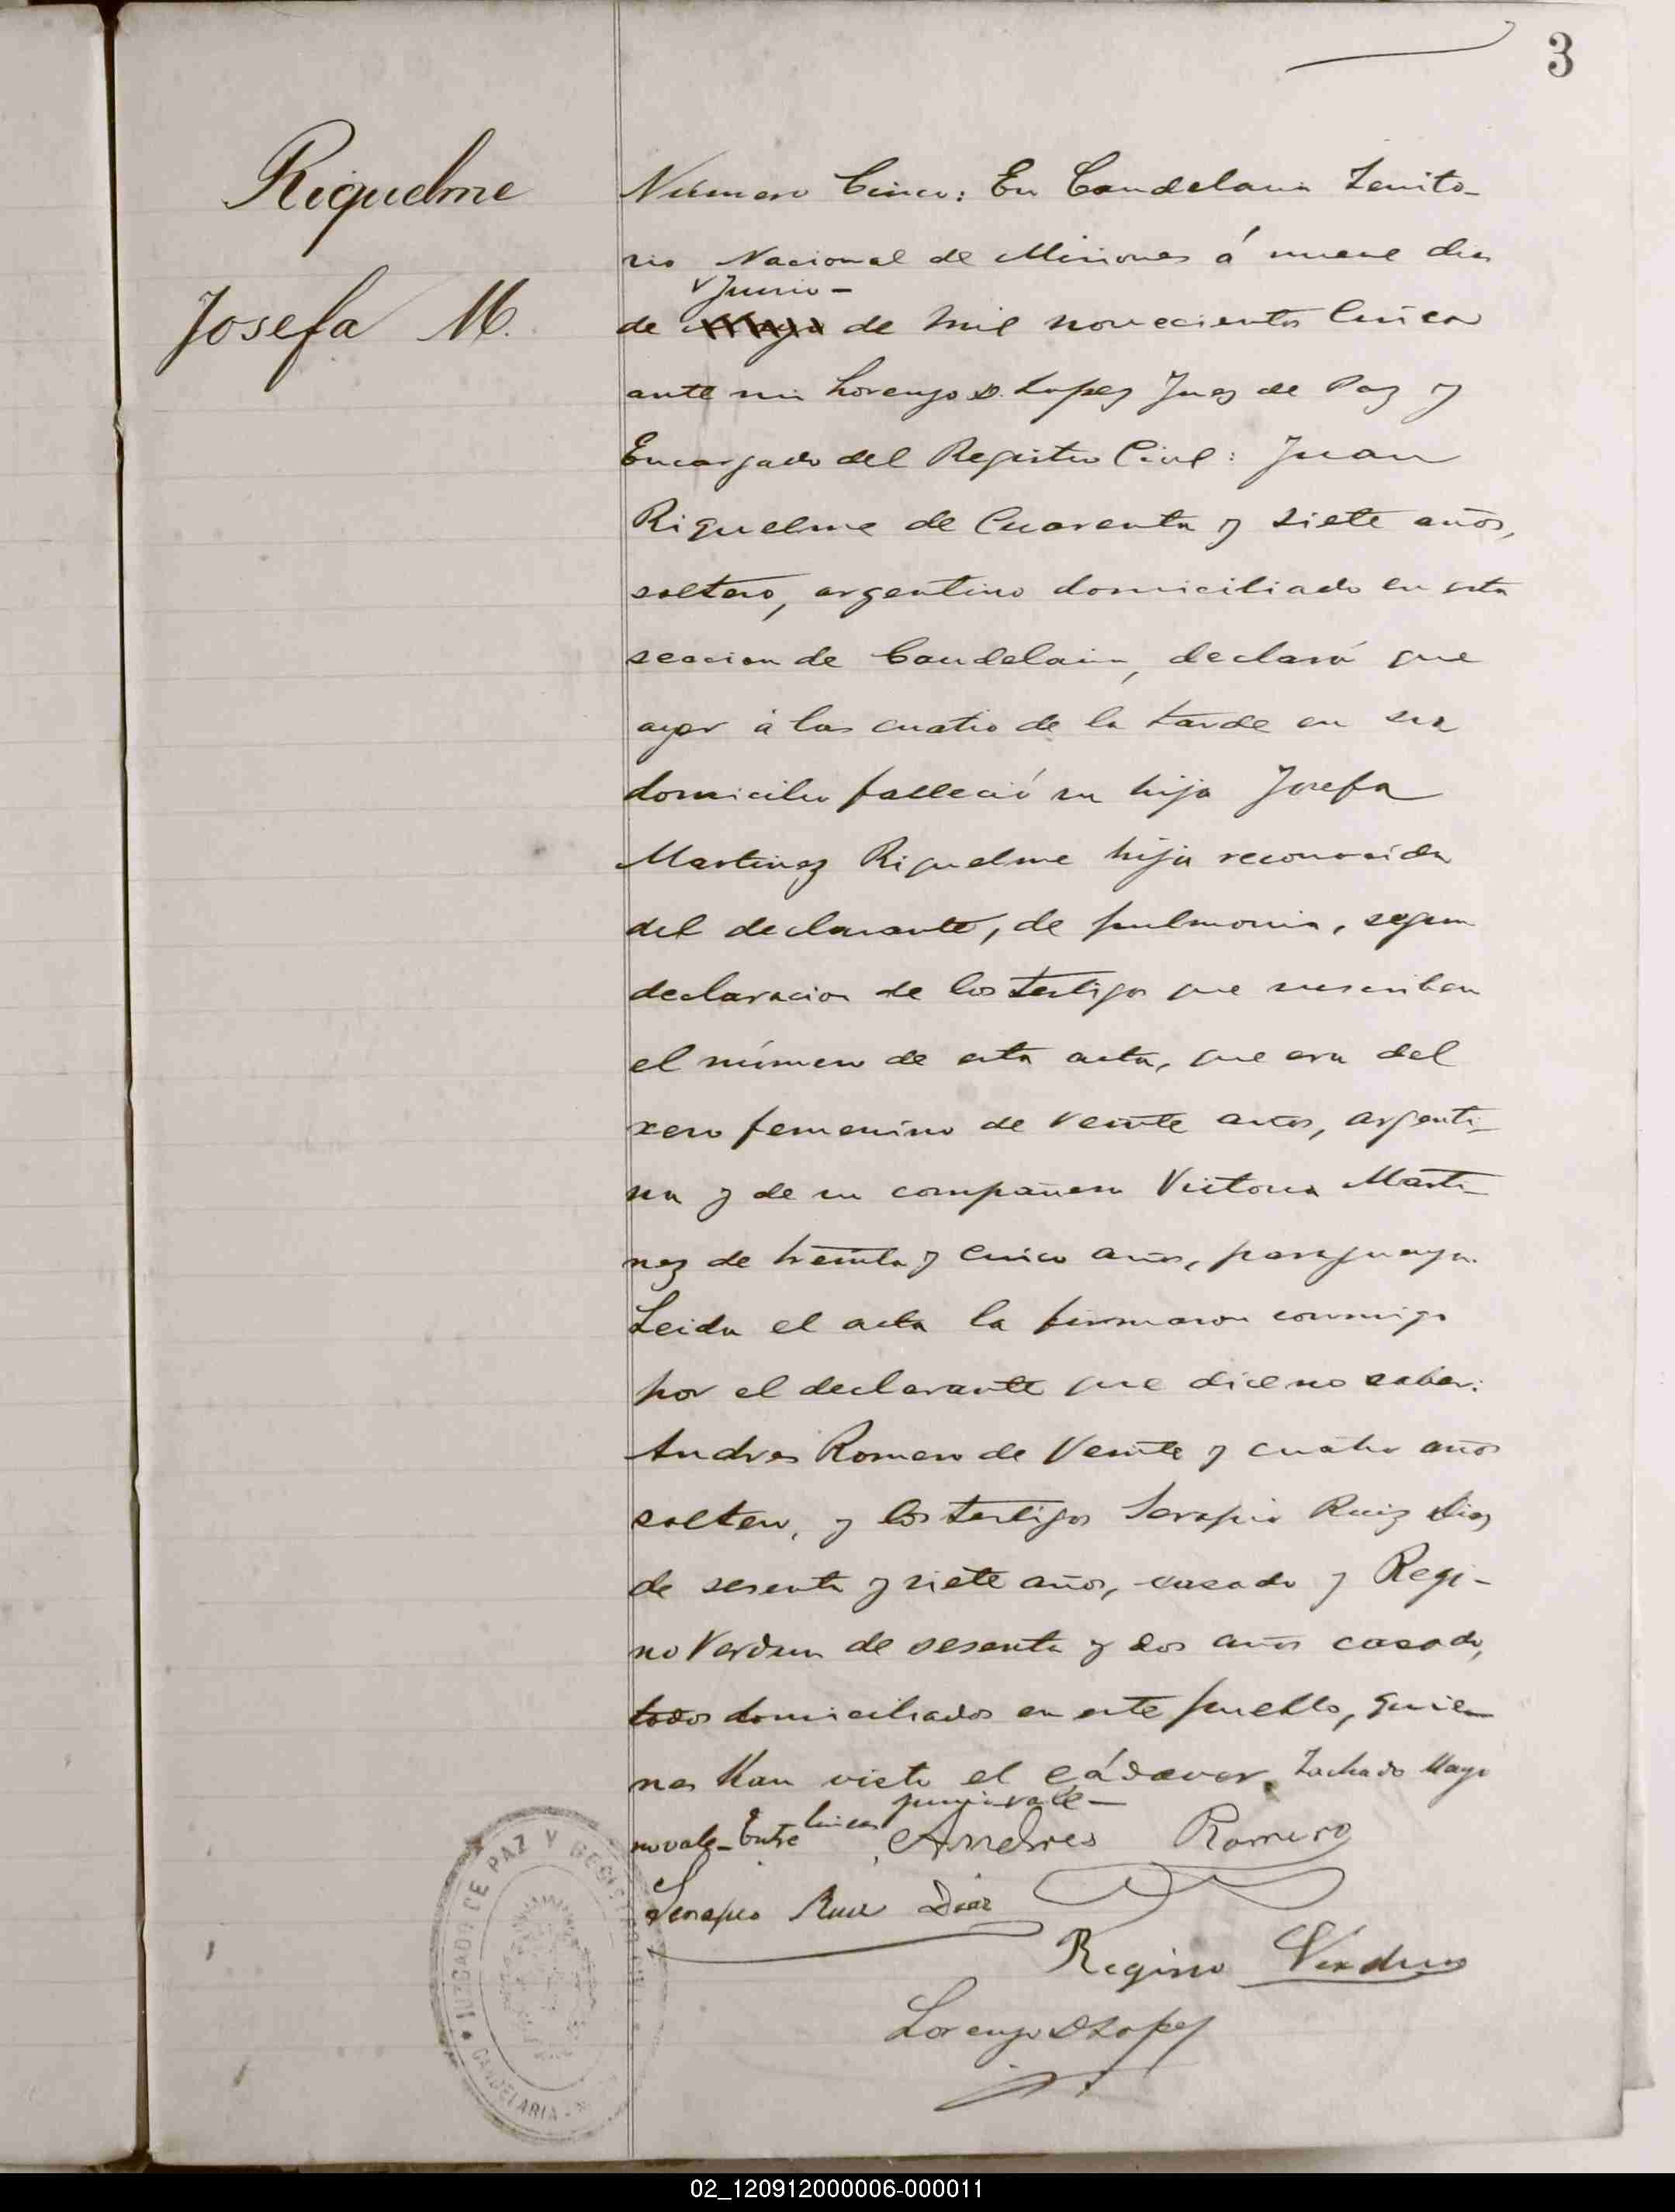 3
Riquelme
Josefa M.
Número Cinco: En Candelaria Territo-
rio Nacional de Misiones á nueve dias
Junio -
de Mayo de mil novecientos Cinco
ante mi Lorenzo D. Lopez Juez de Paz y
Encargado del Registro Civil: Juan
Riquelme de Cuarenta y siete años,
soltero, argentino domiciliado en esta
seccion de Candelaria, declaró que
ayer á las cuatro de la tarde en su
domicilio falleció su hija Josefa
Martinez Riquelme hija reconocida
del declarante, de pulmonia, segun
declaracion de los testigos que suscriben
el número de esta acta, que era del
sexo femenino de veinte años, argenti-
na y de su compañera Victoria Marti-
nez de treinta y cinco años, paraguaya.
Leida el acta la firmaron conmigo
por el declarante que dice no saber:
Andres Romero de Veinte y cuatro años
soltero, y los testigos Serapio Ruiz Diaz
de sesenta y siete años, casado y Regi-
no Verdun de sesenta y dos años casado,
todos domiciliados en este pueblo, quie-
nes han visto el cádaver. Tachado Mayo
no vale - Entre lineas junio vale -
Andres Romero
Serapio Ruiz Diaz
Regino Verdun
Lorenzo D Lopez
JUZGADO DE PAZ Y
CANDELARIA
02_120912000006-000011